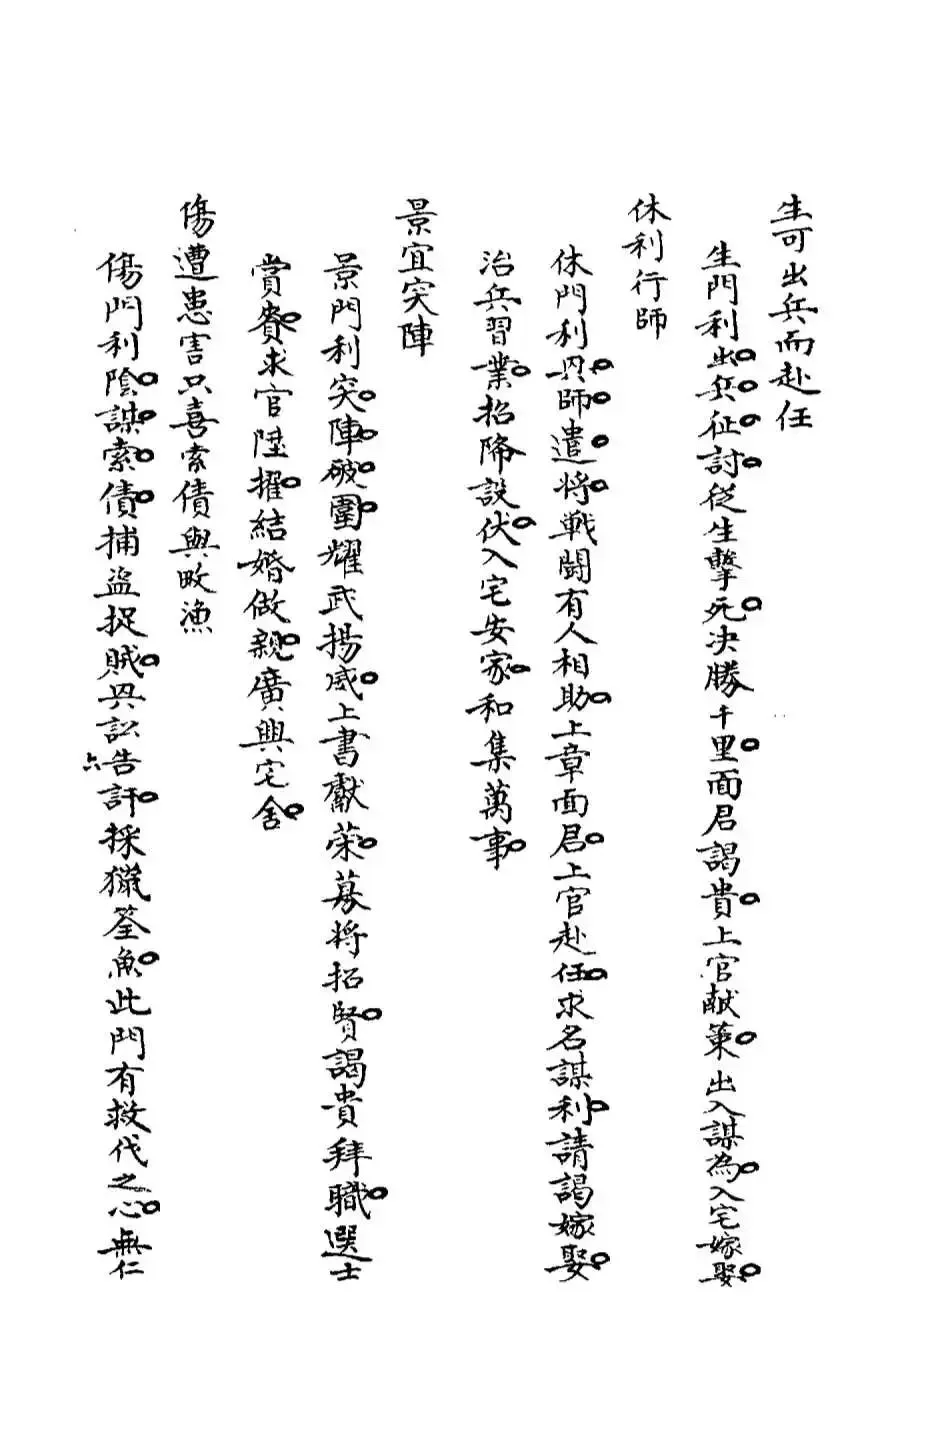 生可出兵而赴任
生門利出兵征討從生擊死決勝千里面君謁貴上官献策出入謀為入宅嫁娶
休利行師
休門利兴師遣將戦鬪有人相助上章面君上官赴任求名謀利請謁嫁娶
治兵習業招降設伏入宅安家和集萬事
景宜突陣
景門利突陣破圍耀武揚威上書獻荣募將招賢謁貴拜職選士
賞賚求官陞擢結婚做親廣興宅舍
傷遭患害只喜索債與畋漁
傷門利陰謀索債捕盜捉賊兴訟告訐採獵筌魚此門有救伐之心無仁
六